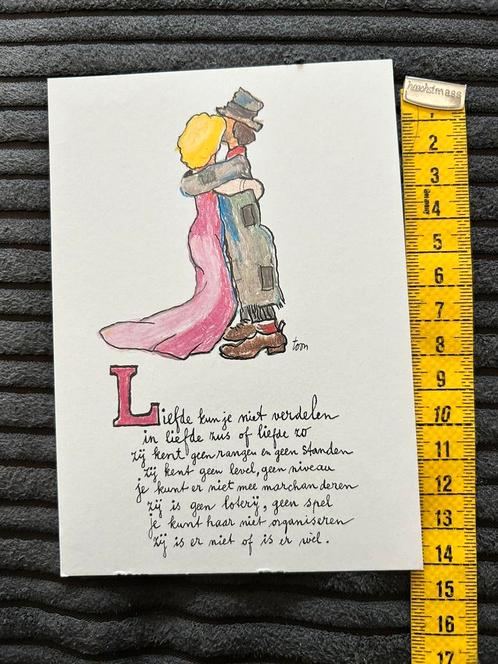 toon
Liefde kun je niet verdelen
in liefde zus of liefde zo
zij kent geen rangen en geen standen
zij kent geen level, geen niveau
je kunt er niet mee marchanderen
zij is geen loterij, geen spel
je kunt haar niet organiseren
zij is er niet of is er wèl.
hoechstmass
1
2
3
4
5
6
7
8
9
10
11
12
13
14
15
16
17